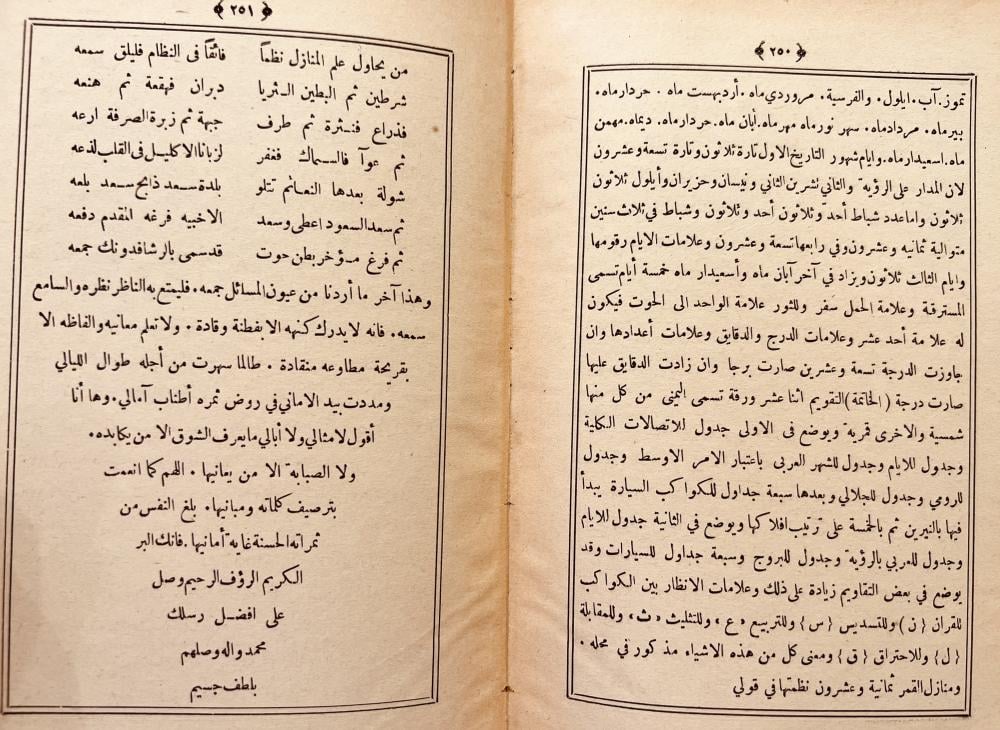 ﴿ ٢٥٠ ﴾
تموز. آب. ايلول. والفرسية. مروردي ماه. أردبهست ماه. حردارماه.
بيرماه. مردادماه. سهر نورماه مهرماه. أبان ماه. حردارماه. ديماه. مهمن
ماه. اسعيدارماه. وايام شهور التاريخ الاول تارة ثلاثون وتارة تسعة وعشرون
لان المدار على الرؤية والثاني نشرين الثاني ونيسان وحزيران وأيلول ثلاثون
ثلاثون واماعدد شباط أحد وثلاثون أحد وثلاثون وشباط في ثلاث سنين
متوالية ثمانيه وعشرون وفي رابعها تسعة وعشرون وعلامات الايام رقومها
وايام الثالث ثلاثون ويزاد في آخر آبان ماه وأسعيدار ماه خمسة أيام تسمى
المسترقة وعلامة الحمل صفر وللثور علامة الواحد الى الحوت فيكون
له علامة أحد عشر وعلامات الدرج والدقايق وعلامات أعدادها وان
جاوزت الدرجة تسعة وعشرين صارت برجا وان زادت الدقايق عليها
صارت درجة (الخاتمة) التقويم اثنا عشر ورقة تسمى اليمنى من كل منها
شمسية والاخرى قمرية ويوضع فى الاولى جدول للاتصالات الكلية
وجدول للايام وجدول للشهر العربى باعتبار الامر الاوسط وجدول
للرومي وجدول للجلالي وبعدها سبعة جداول للكواكب السيارة يبدأ
فيها بالنيرين ثم بالخمسة على ترتيب افلاكها ويوضع في الثانية جدول للايام
وجدول للعربي بالرؤية وجدول للبروج وسبعة جداول للسيارات وقد
يوضع في بعض التقاويم زيادة على ذلك وعلامات الانظار بين الكواكب
للقران {ن} وللتسديس {س} وللتربيع «ع» وللتثليث «ث» وللمقابلة
{ل} وللاحتراق {ق} ومعنى كل من هذه الاشياء مذكور في محله.
ومنازل القمر ثمانية وعشرون نظمتها في قولي
﴿ ٢٥١ ﴾
من يحاول علم المنازل نظماً فائقاً فى النظام فليلق سمعه
شرطين ثم البطين الثريا دبران فهقعة ثم هنعه
فذراع فنثرة ثم طرف جبهة ثم زبرة الصرفة ارعه
ثم عوآ فالسماك فغفر لزبانا الاكليل فى القلب لذعه
شولة بعدها النعائم تتلو بلدة سعد ذابح سعد بلعه
ثم سعد السعود اعطى وسعد الاخبيه فرغه المقدم دفعه
ثم فرغ مؤخر بطن حوت قد سمى بالرشا فدونك جمعه
وهذا آخر ما أردنا من عيون المسائل جمعه. فليمتع به الناظر نظره والسامع
سمعه. فانه لا يدرك كنهه الا بفطنة وقادة. ولا تعلم معانيه والفاظه الا
بقريحة مطاوعه منقادة. طالما سهرت من أجله طوال الليالي
ومددت بيد الاماني في روض ثمره أطناب آمالي. وها أنا
أقول لامثالي ولا أبالي ما يعرف الشوق الا من يكابده.
ولا الصبابة الا من يعانيها. اللهم كما انعمت
بترصيف كلماته ومبانيها. بلغ النفس من
ثمراته الحسنة غاية أمانيها. فانك البر
الكريم الرؤف الرحيم وصل
على افضل رسلك
محمد واله وصلهم
بلطف جسيم